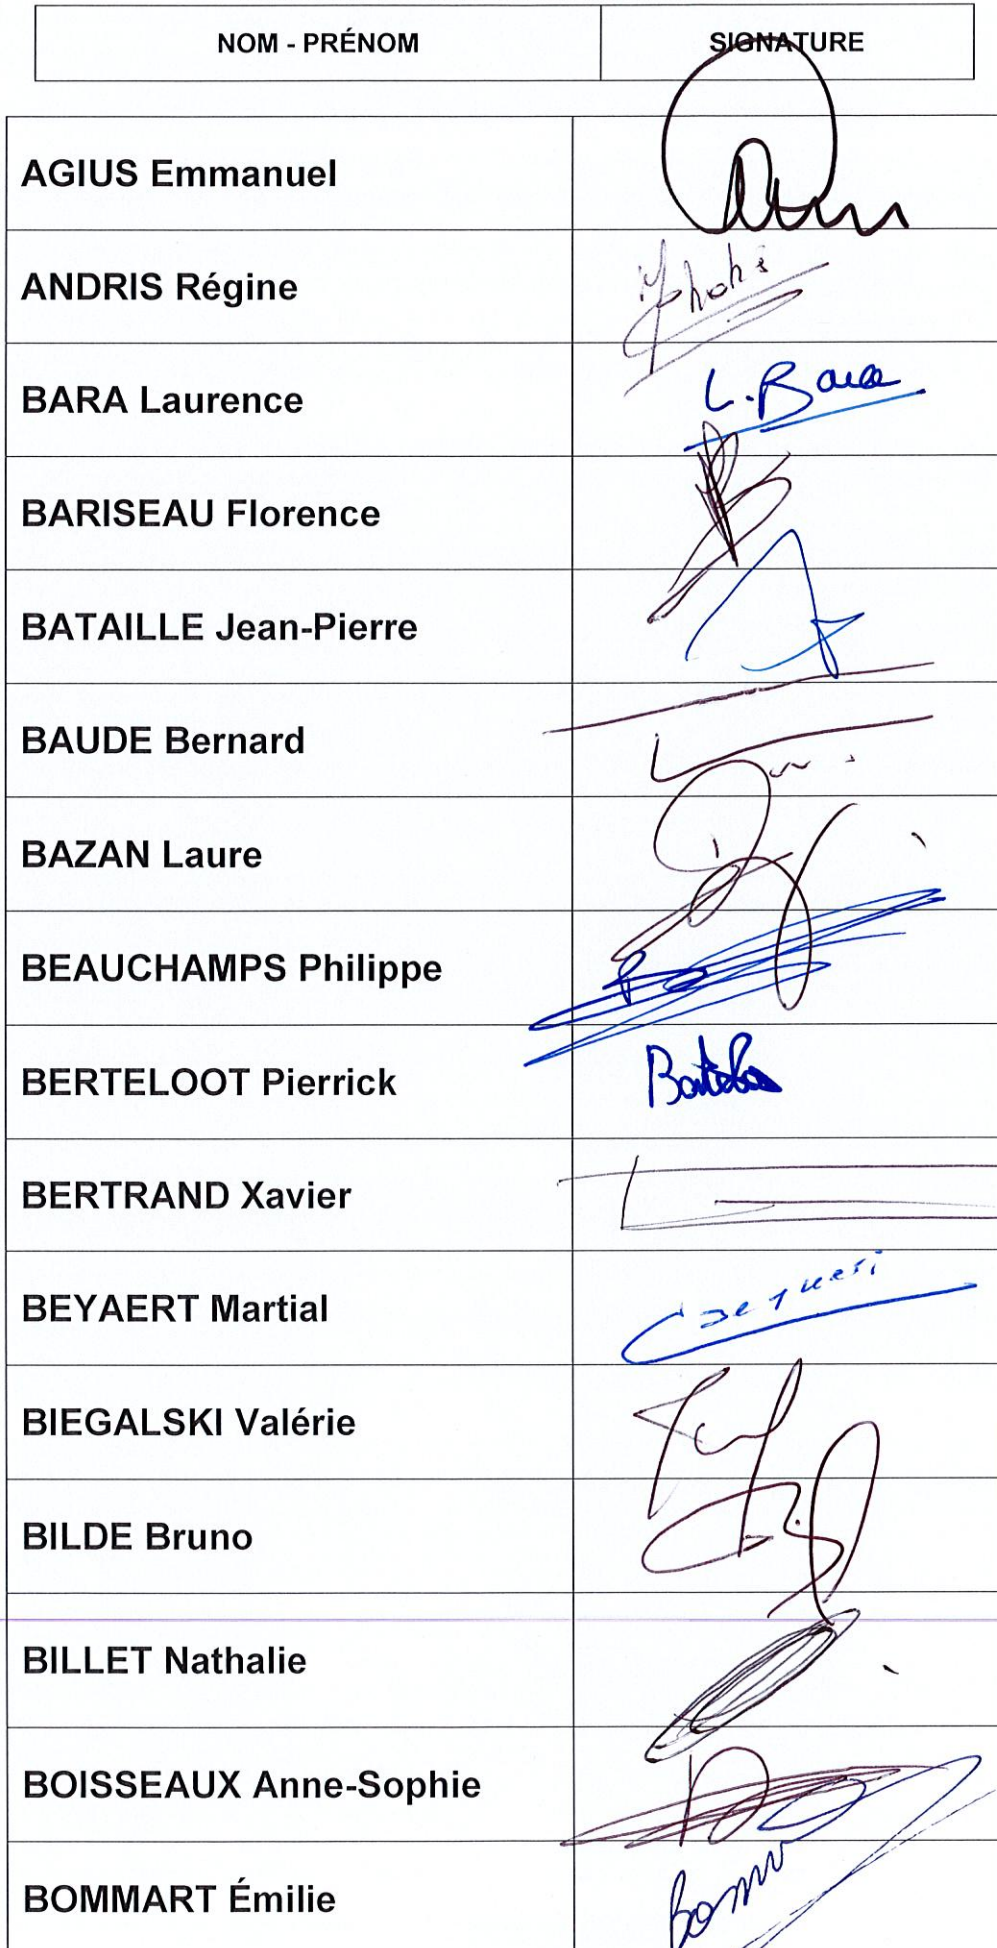 NOM - PRÉNOM SIGNATURE
AGIUS Emmanuel
ANDRIS Régine
BARA Laurence L. Bara
BARISEAU Florence
BATAILLE Jean-Pierre
BAUDE Bernard
BAZAN Laure
BEAUCHAMPS Philippe
BERTELOOT Pierrick
BERTRAND Xavier
BEYAERT Martial
BIEGALSKI Valérie
BILDE Bruno
BILLET Nathalie
BOISSEAUX Anne-Sophie
BOMMART Émilie